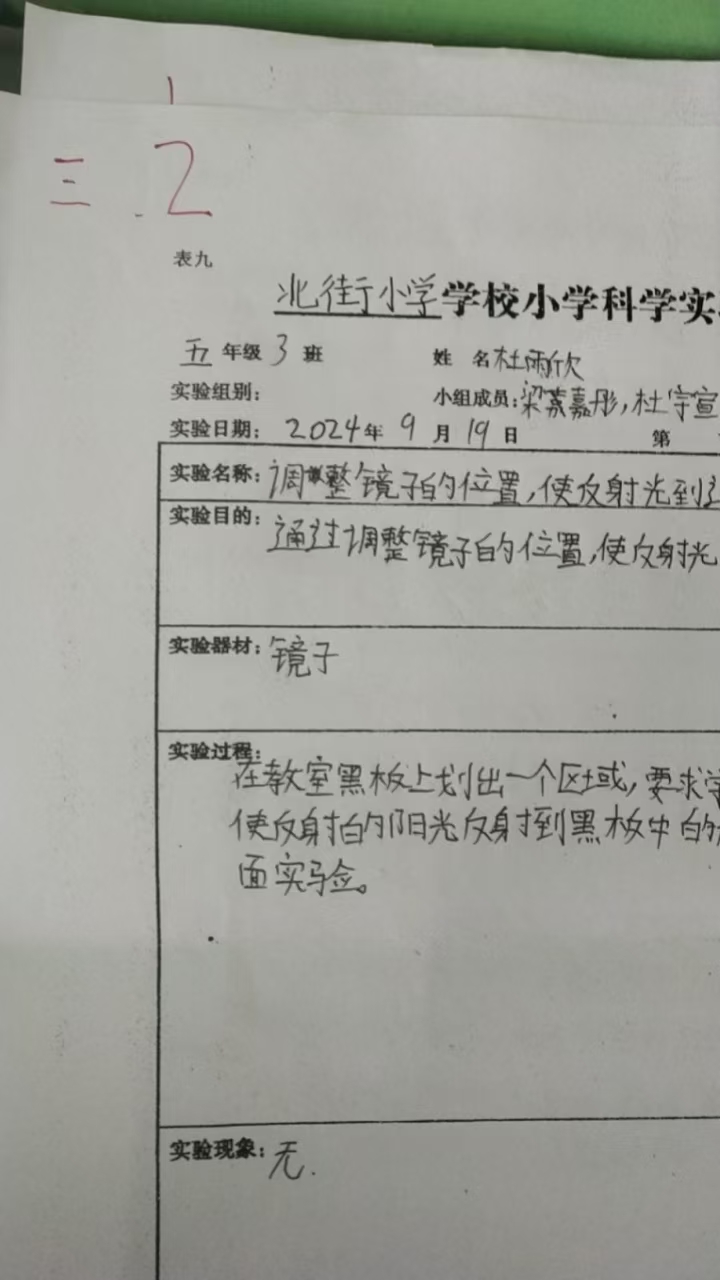 1
三.2
表九
北街小学学校小学科学实
五年级3班 姓 名杜雨欣
实验组别: 小组成员:梁慕嘉彤,杜宇宣
实验日期: 2024年9月19日 第
实验名称:调整镜子的位置,使反射光到
实验目的:通过调整镜子的位置,使反射光
实验器材:镜子
实验过程:
在教室黑板上划出一个区域,要求学
使反射的阳光反射到黑板中的
面实验。
实验现象:无.